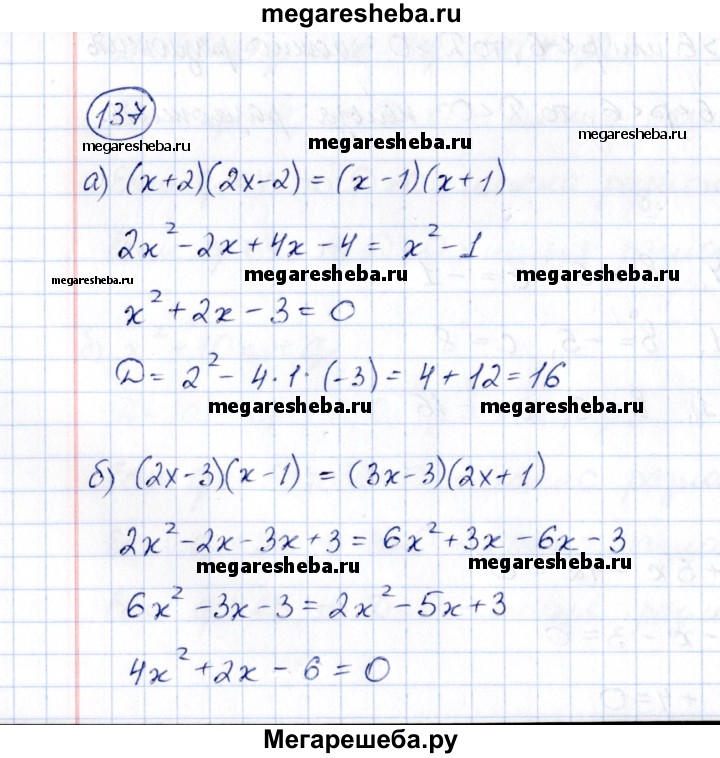 megaresheba.ru
137
megaresheba.ru megaresheba.ru megaresheba.ru
а) (x+2)(2x-2) = (x-1)(x+1)
2x²-2x+4x-4 = x²-1
megaresheba.ru megaresheba.ru megaresheba.ru
x²+2x-3=0
D = 2²-4·1·(-3) = 4+12=16
megaresheba.ru megaresheba.ru
б) (2x-3)(x-1) = (3x-3)(2x+1)
2x²-2x-3x+3 = 6x²+3x-6x-3
megaresheba.ru megaresheba.ru
6x²-3x-3 = 2x²-5x+3
4x²+2x-6=0
Мегарешеба.ру